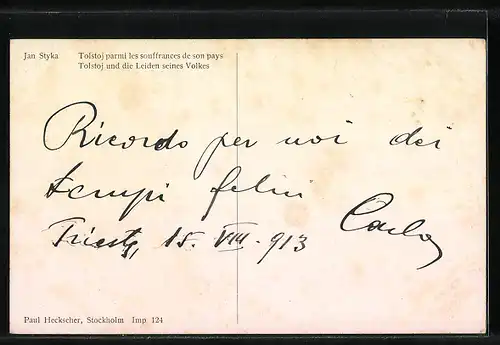 Jan Styka Tolstoj parmi les souffrances de son pays
Tolstoj und die Leiden seines Volkes
Ricordo per noi dei
tempi felici
Carlo
Trieste, 15. VIII. 913
Paul Heckscher, Stockholm Imp 124